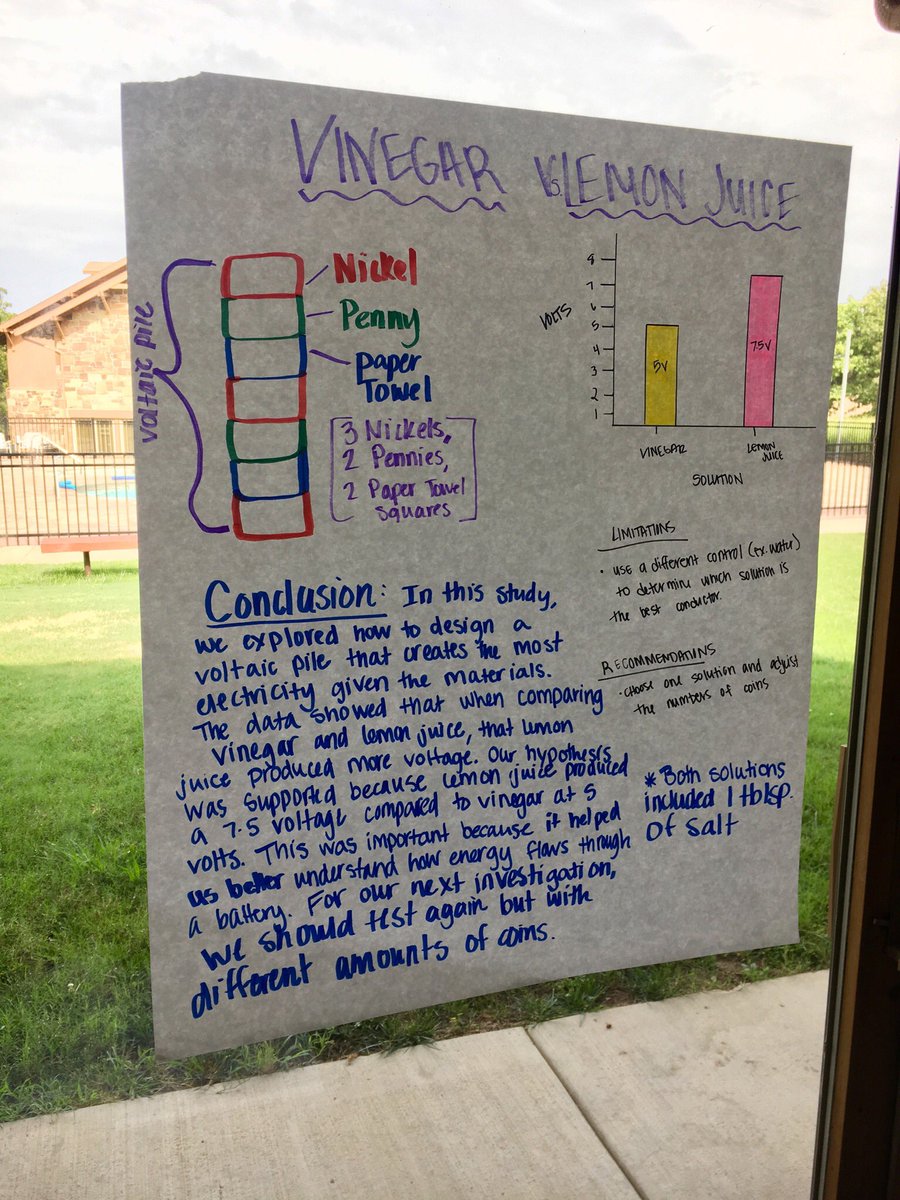 VINEGAR VS. LEMON JUICE
voltaic pile
Nickel
Penny
Paper
Towel
3 Nickels,
2 Pennies,
2 Paper Towel
Squares
VOLTS
8
7
6
5
4
3
2
1
5V
7.5V
VINEGAR
LEMON
JUICE
SOLUTION
LIMITATIONS
• USE a different control (ex. water)
to determine which solution is
the best conductor.
RECOMMENDATIONS
• choose one solution and adjust
the numbers of coins
Conclusion: In this study,
we explored how to design a
voltaic pile that creates the most
electricity given the materials.
The data showed that when comparing
vinegar and lemon juice, that lemon
juice produced more voltage. Our hypothesis
was supported because lemon juice produced
a 7.5 voltage compared to vinegar at 5
volts. This was important because it helped
us better understand how energy flows through
a battery. For our next investigation,
we should test again but with
different amounts of coins.
* Both solutions
included 1 tblsp.
of salt